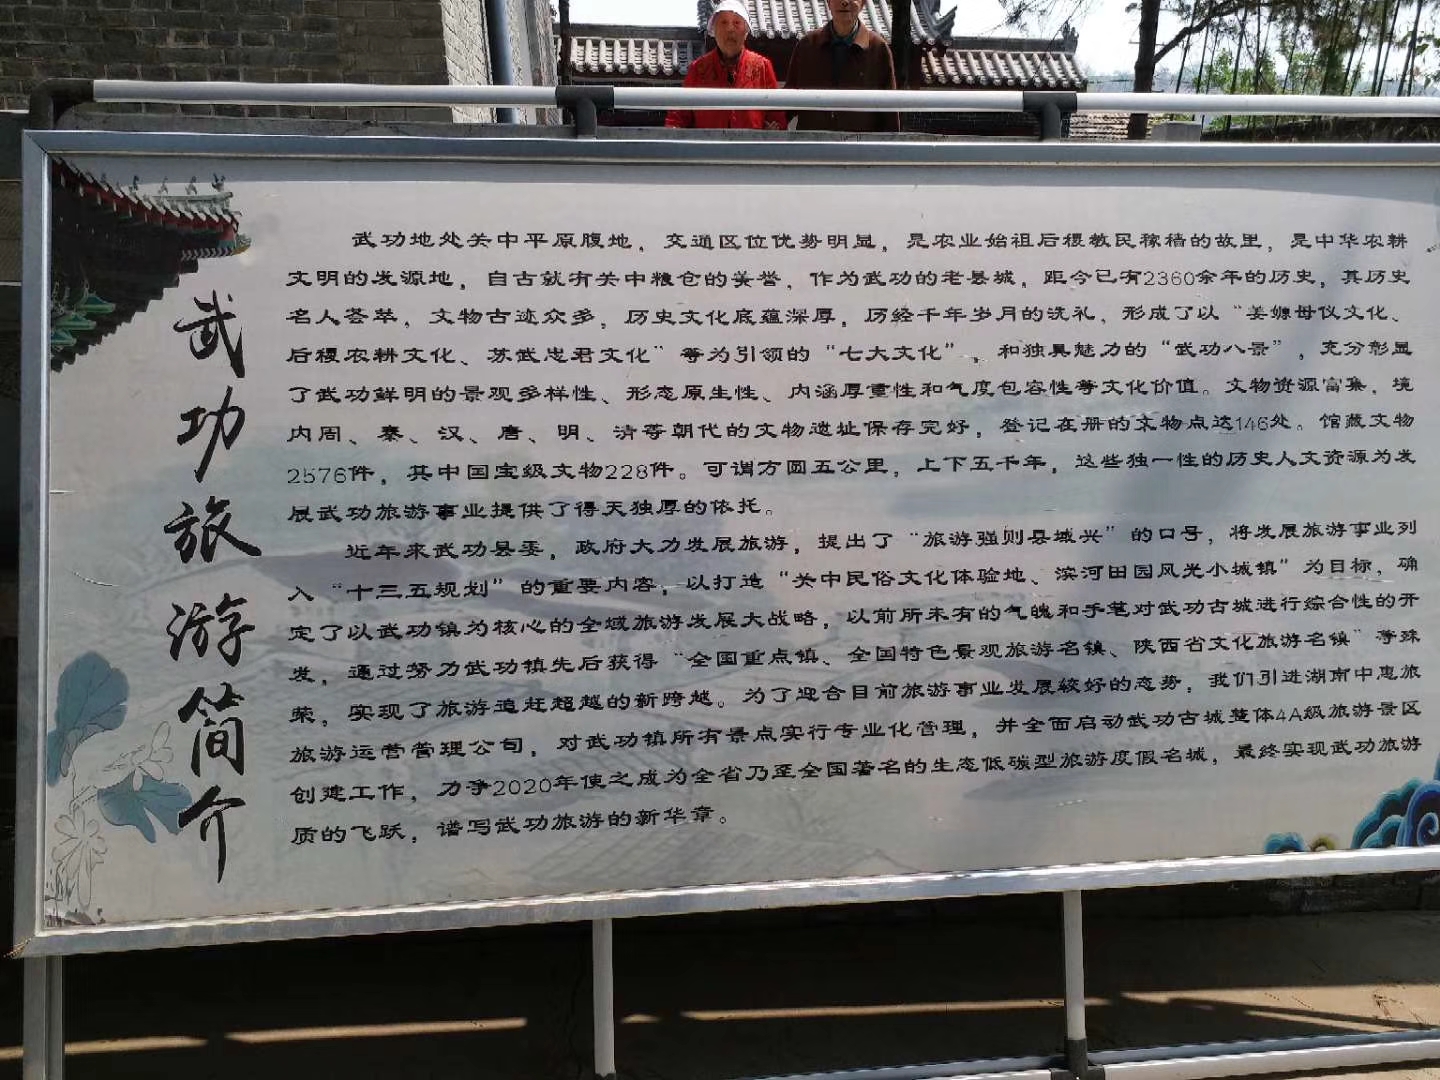 武功旅游简介
武功地处关中平原腹地，交通区位优势明显，是农业始祖后稷教民稼穑的故里，是中华农耕
文明的发源地，自古就有关中粮仓的美誉，作为武功的老县城，距今已有2360余年的历史，其历史
名人荟萃，文物古迹众多，历史文化底蕴深厚，历经千年岁月的洗礼，形成了以“姜嫄母仪文化、
后稷农耕文化、苏武忠君文化”等为引领的“七大文化”，和独具魅力的“武功八景”，充分彰显
了武功鲜明的景观多样性、形态原生性、内涵厚重性和气度包容性等文化价值。文物资源富集，境
内周、秦、汉、唐、明、清等朝代的文物遗址保存完好，登记在册的文物点达146处。馆藏文物
2576件，其中国宝级文物228件。可谓方圆五公里，上下五千年，这些独一性的历史人文资源为发
展武功旅游事业提供了得天独厚的依托。
近年来武功县委，政府大力发展旅游，提出了“旅游强则县域兴”的口号，将发展旅游事业列
入“十三五规划”的重要内容，以打造“关中民俗文化体验地、滨河田园风光小城镇”为目标，确
定了以武功镇为核心的全域旅游发展大战略，以前所未有的气魄和手笔对武功古城进行综合性的开
发，通过努力武功镇先后获得“全国重点镇、全国特色景观旅游名镇、陕西省文化旅游名镇”等殊
荣，实现了旅游追赶超越的新跨越。为了迎合目前旅游事业发展较好的态势，我们引进湖南中惠旅
旅游运营管理公司，对武功镇所有景点实行专业化管理，并全面启动武功古城整体4A级旅游景区
创建工作，力争2020年使之成为全省乃至全国著名的生态低碳型旅游度假名城，最终实现武功旅游
质的飞跃，谱写武功旅游的新华章。